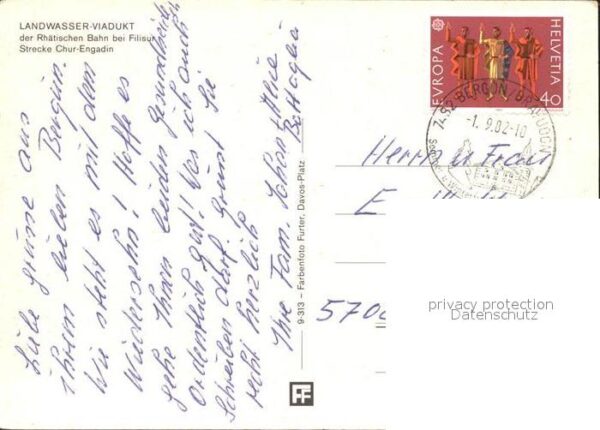 LANDWASSER-VIADUKT
der Rhätischen Bahn bei Filisur
Strecke Chur-Engadin
Liebe Grüsse aus
Ihrem lieben Bergün.
Wie steht es mit dem
Wiedersehn! Hoffe es
gehe Ihnen beiden Gesundheitl.
Ordentlich gut!! Was ich auch
Schreiben darf. Grüsst Sie
recht herzlich
Ihre Fam.
9-313 – Farbenfoto Furter, Davos-Platz
FF
EUROPA
HELVETIA
40
7482 BERGÜN/BRAVUOGN
-1.9.82-10
Herrn u Frau
E
570
privacy protection
Datenschutz